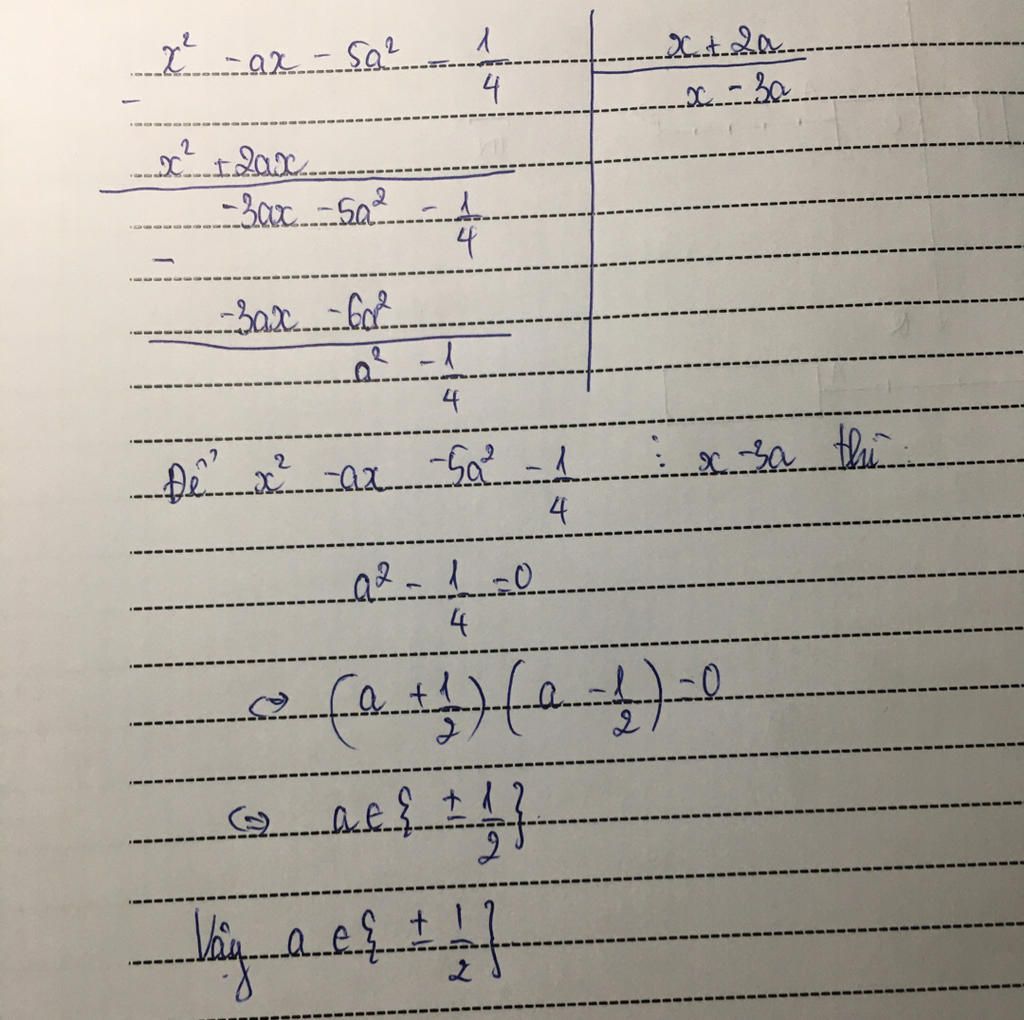 x² - ax - 5a² - 1/4 | x + 2a
- | x - 3a
x² + 2ax
-3ax - 5a² - 1/4
-
-3ax - 6a²
a² - 1/4
Để x² - ax - 5a² - 1/4 ⋮ x - 3a thì
a² - 1/4 = 0
⇔ (a + 1/2) (a - 1/2) = 0
⇔ a ∈ { ± 1/2 }
Vậy a ∈ { ± 1/2 }